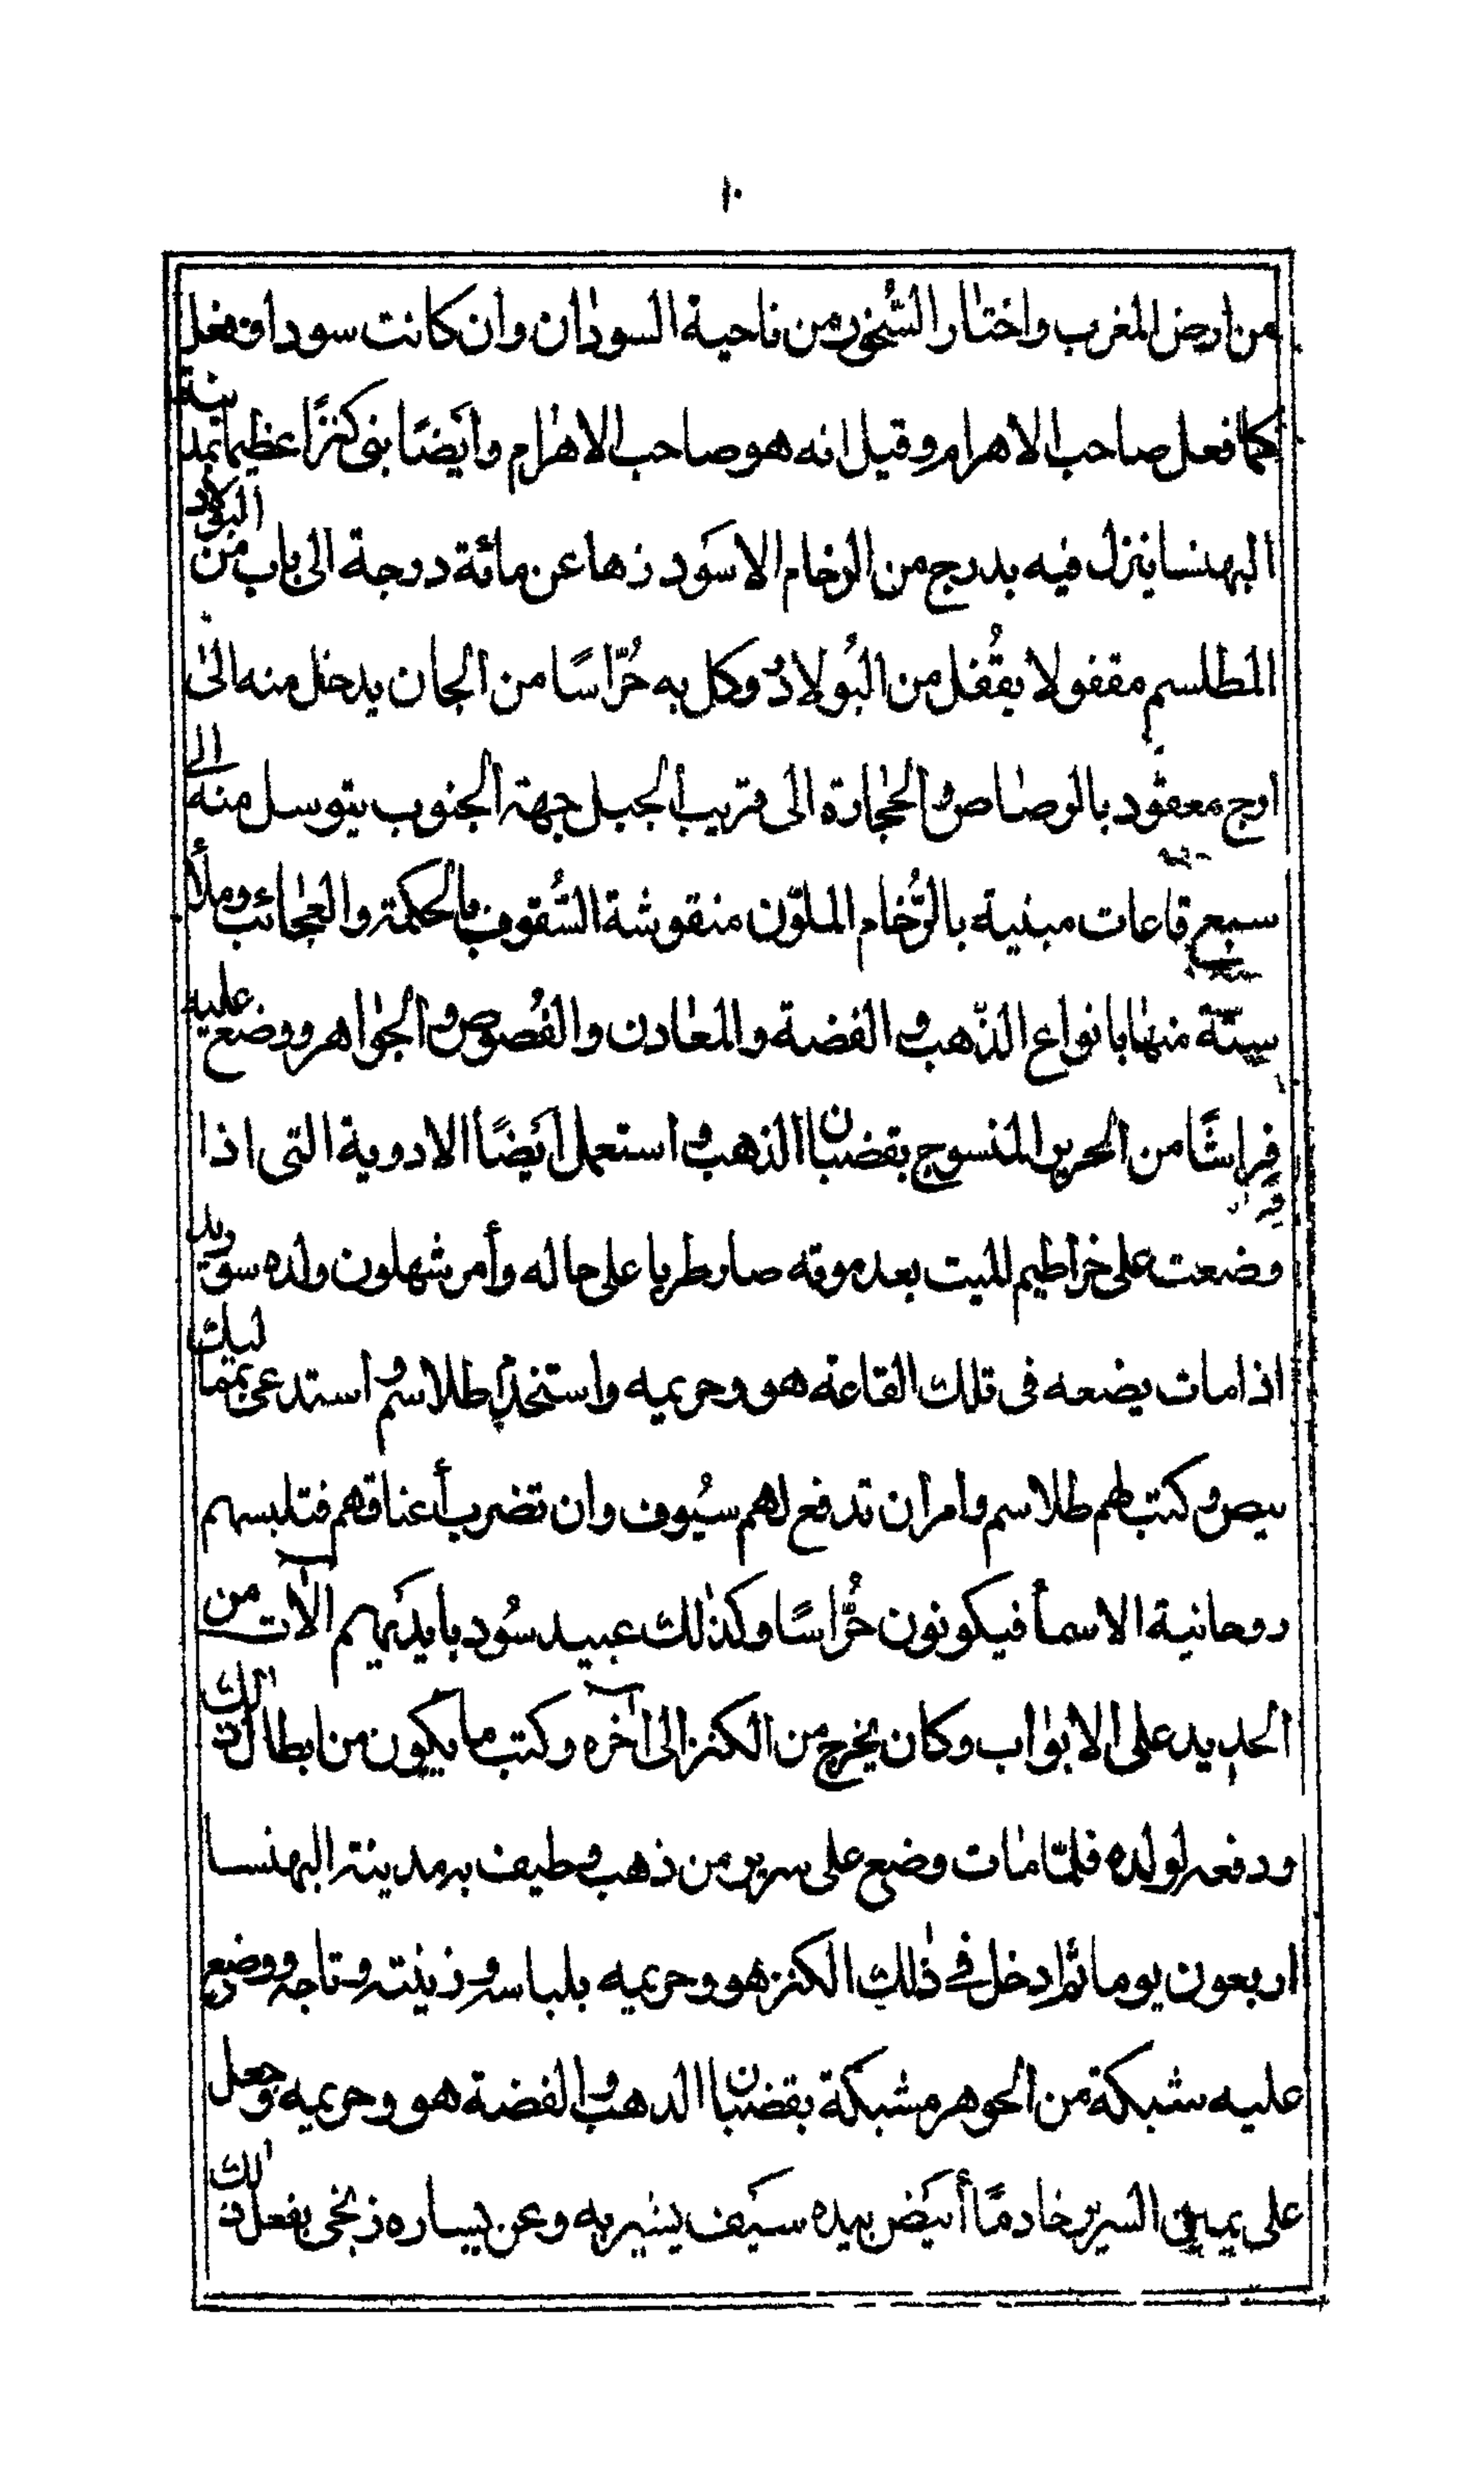 ١٠
من ارض المغرب واختار الشخور من ناحية السودان وان كانت سودا ففعل
كما فعل صاحب الاهرام وقيل انه هو صاحب الاهرام وايضًا بنى كنزًا عظيما بمدينة
البهنسا ينزل فيه بدرج من الرخام الاسود زها عن مائة درجة الى باب من البولاد
المطلسم مقفولا بقُفل من البُولاد ووكل به حُرّاسًا من الجان يدخل منه الى
ازج معقود بالرصاص والحجارة الى قريب الجبل جهة الجنوب يتوسل منه الى
سبع قاعات مبنية بالرُّخام الملوّن منقوشة السُّقوف بالحكمة والعجائب وملأ
ستّة منها بانواع الذّهب والفضة والمعادن والفُصوص والجواهر ووضع عليه
فِراشًا من الحرير المنسوج بقضبان الذهب واستعمل ايضًا الادوية التى اذا
وضعت على خراطيم الميت بعد موته صار طريا على حاله وأمر شهلون ولده سوريد
اذا مات يضعه فى تلك القاعة هو وحريمه واستخدم طلاسم واستدعى بمقاليك
بيض وكتب لهم طلاسم وامر ان تدفع لهم سُيوف وان تضرب أعناقهم فتلبسهم
روحانية الاسمأ فيكونون حُرّاسًا وكذلك عبيد سُود بايديهم الآت من
الحديد على الابواب وكان يخرج من الكنز الى آخره وكتب ما يكون من ابطال ذلك
ودفعه لولده فلمّا مات وضع على سرير من ذهب وطيف به مدينة البهنسا
اربعون يوما ثم ادخل فى ذلك الكنز هو وحريمه بلباسه وزينته وتاجه ووضع
عليه شبكة من الجوهر مشبكة بقضبان الدهب والفضة هو وحريمه وجعل
على يمين السرير خادمًا أبيض بيده سيف يشير به وعن يساره زنجى يفعل ذلك